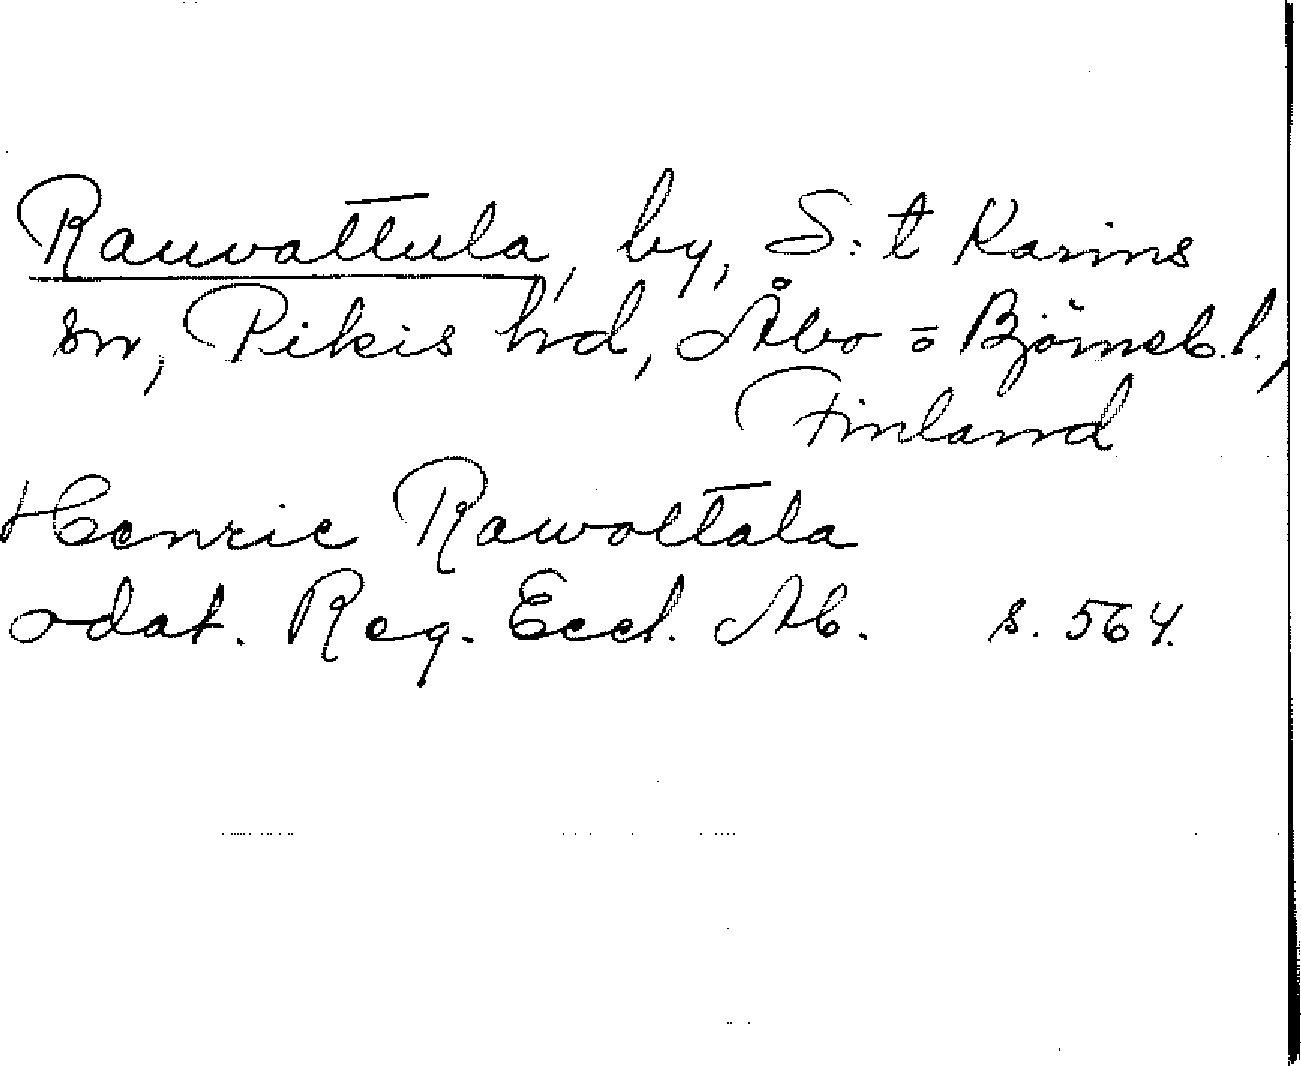 Rauvattula, by, S:t Karins
sn, Pikis hd, Åbo = Björneb.l.,
Finland
Henric Rawattala
odat. Reg. Eccl. Ab. s. 564.